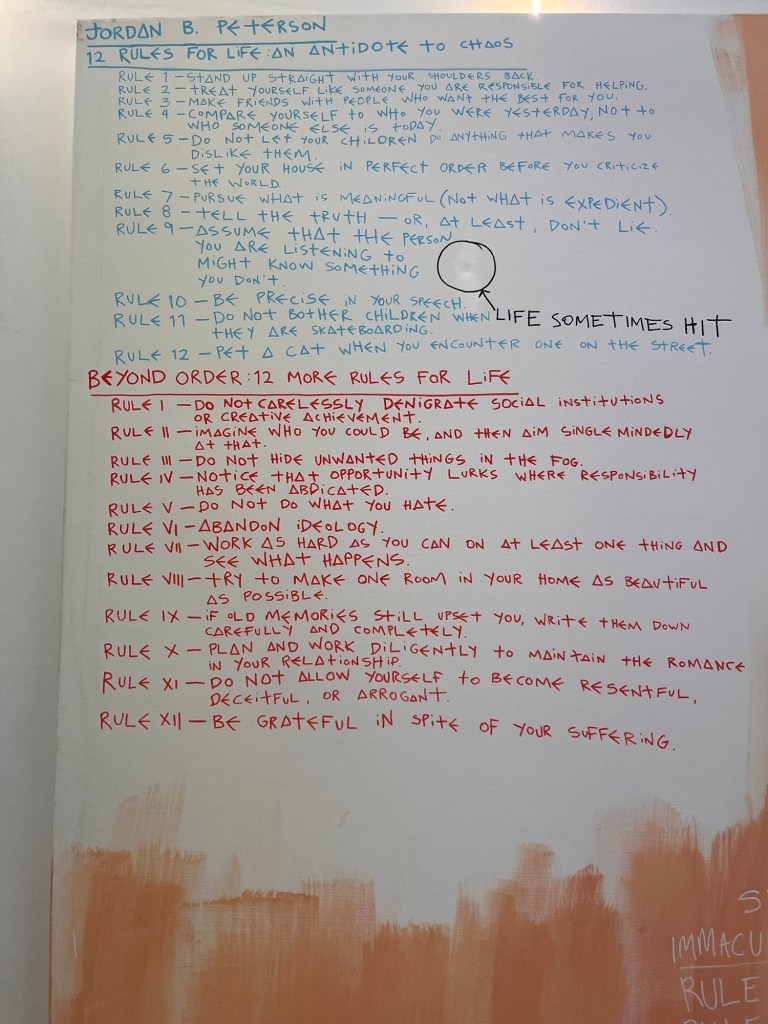 JORDAN B. PETERSON
12 RULES FOR LIFE: AN ANTIDOTE TO CHAOS
RULE 1 – STAND UP STRAIGHT WITH YOUR SHOULDERS BACK.
RULE 2 – TREAT YOURSELF LIKE SOMEONE YOU ARE RESPONSIBLE FOR HELPING.
RULE 3 – MAKE FRIENDS WITH PEOPLE WHO WANT THE BEST FOR YOU.
RULE 4 – COMPARE YOURSELF TO WHO YOU WERE YESTERDAY, NOT TO
WHO SOMEONE ELSE IS TODAY.
RULE 5 – DO NOT LET YOUR CHILDREN DO ANYTHING THAT MAKES YOU
DISLIKE THEM.
RULE 6 – SET YOUR HOUSE IN PERFECT ORDER BEFORE YOU CRITICIZE
THE WORLD.
RULE 7 – PURSUE WHAT IS MEANINGFUL (NOT WHAT IS EXPEDIENT).
RULE 8 – TELL THE TRUTH – OR, AT LEAST, DON'T LIE.
RULE 9 – ASSUME THAT THE PERSON
YOU ARE LISTENING TO
MIGHT KNOW SOMETHING
YOU DON'T.
RULE 10 – BE PRECISE IN YOUR SPEECH.
LIFE SOMETIMES HIT
RULE 11 – DO NOT BOTHER CHILDREN WHEN
THEY ARE SKATEBOARDING.
RULE 12 – PET A CAT WHEN YOU ENCOUNTER ONE ON THE STREET.
BEYOND ORDER: 12 MORE RULES FOR LIFE
RULE I – DO NOT CARELESSLY DENIGRATE SOCIAL INSTITUTIONS
OR CREATIVE ACHIEVEMENT.
RULE II – IMAGINE WHO YOU COULD BE, AND THEN AIM SINGLE MINDEDLY
AT THAT.
RULE III – DO NOT HIDE UNWANTED THINGS IN THE FOG.
RULE IV – NOTICE THAT OPPORTUNITY LURKS WHERE RESPONSIBILITY
HAS BEEN ABDICATED.
RULE V – DO NOT DO WHAT YOU HATE.
RULE VI – ABANDON IDEOLOGY.
RULE VII – WORK AS HARD AS YOU CAN ON AT LEAST ONE THING AND
SEE WHAT HAPPENS.
RULE VIII – TRY TO MAKE ONE ROOM IN YOUR HOME AS BEAUTIFUL
AS POSSIBLE.
RULE IX – IF OLD MEMORIES STILL UPSET YOU, WRITE THEM DOWN
CAREFULLY AND COMPLETELY.
RULE X – PLAN AND WORK DILIGENTLY TO MAINTAIN THE ROMANCE
IN YOUR RELATIONSHIP.
RULE XI – DO NOT ALLOW YOURSELF TO BECOME RESENTFUL,
DECEITFUL, OR ARROGANT.
RULE XII – BE GRATEFUL IN SPITE OF YOUR SUFFERING.
S
IMMACU
RULE